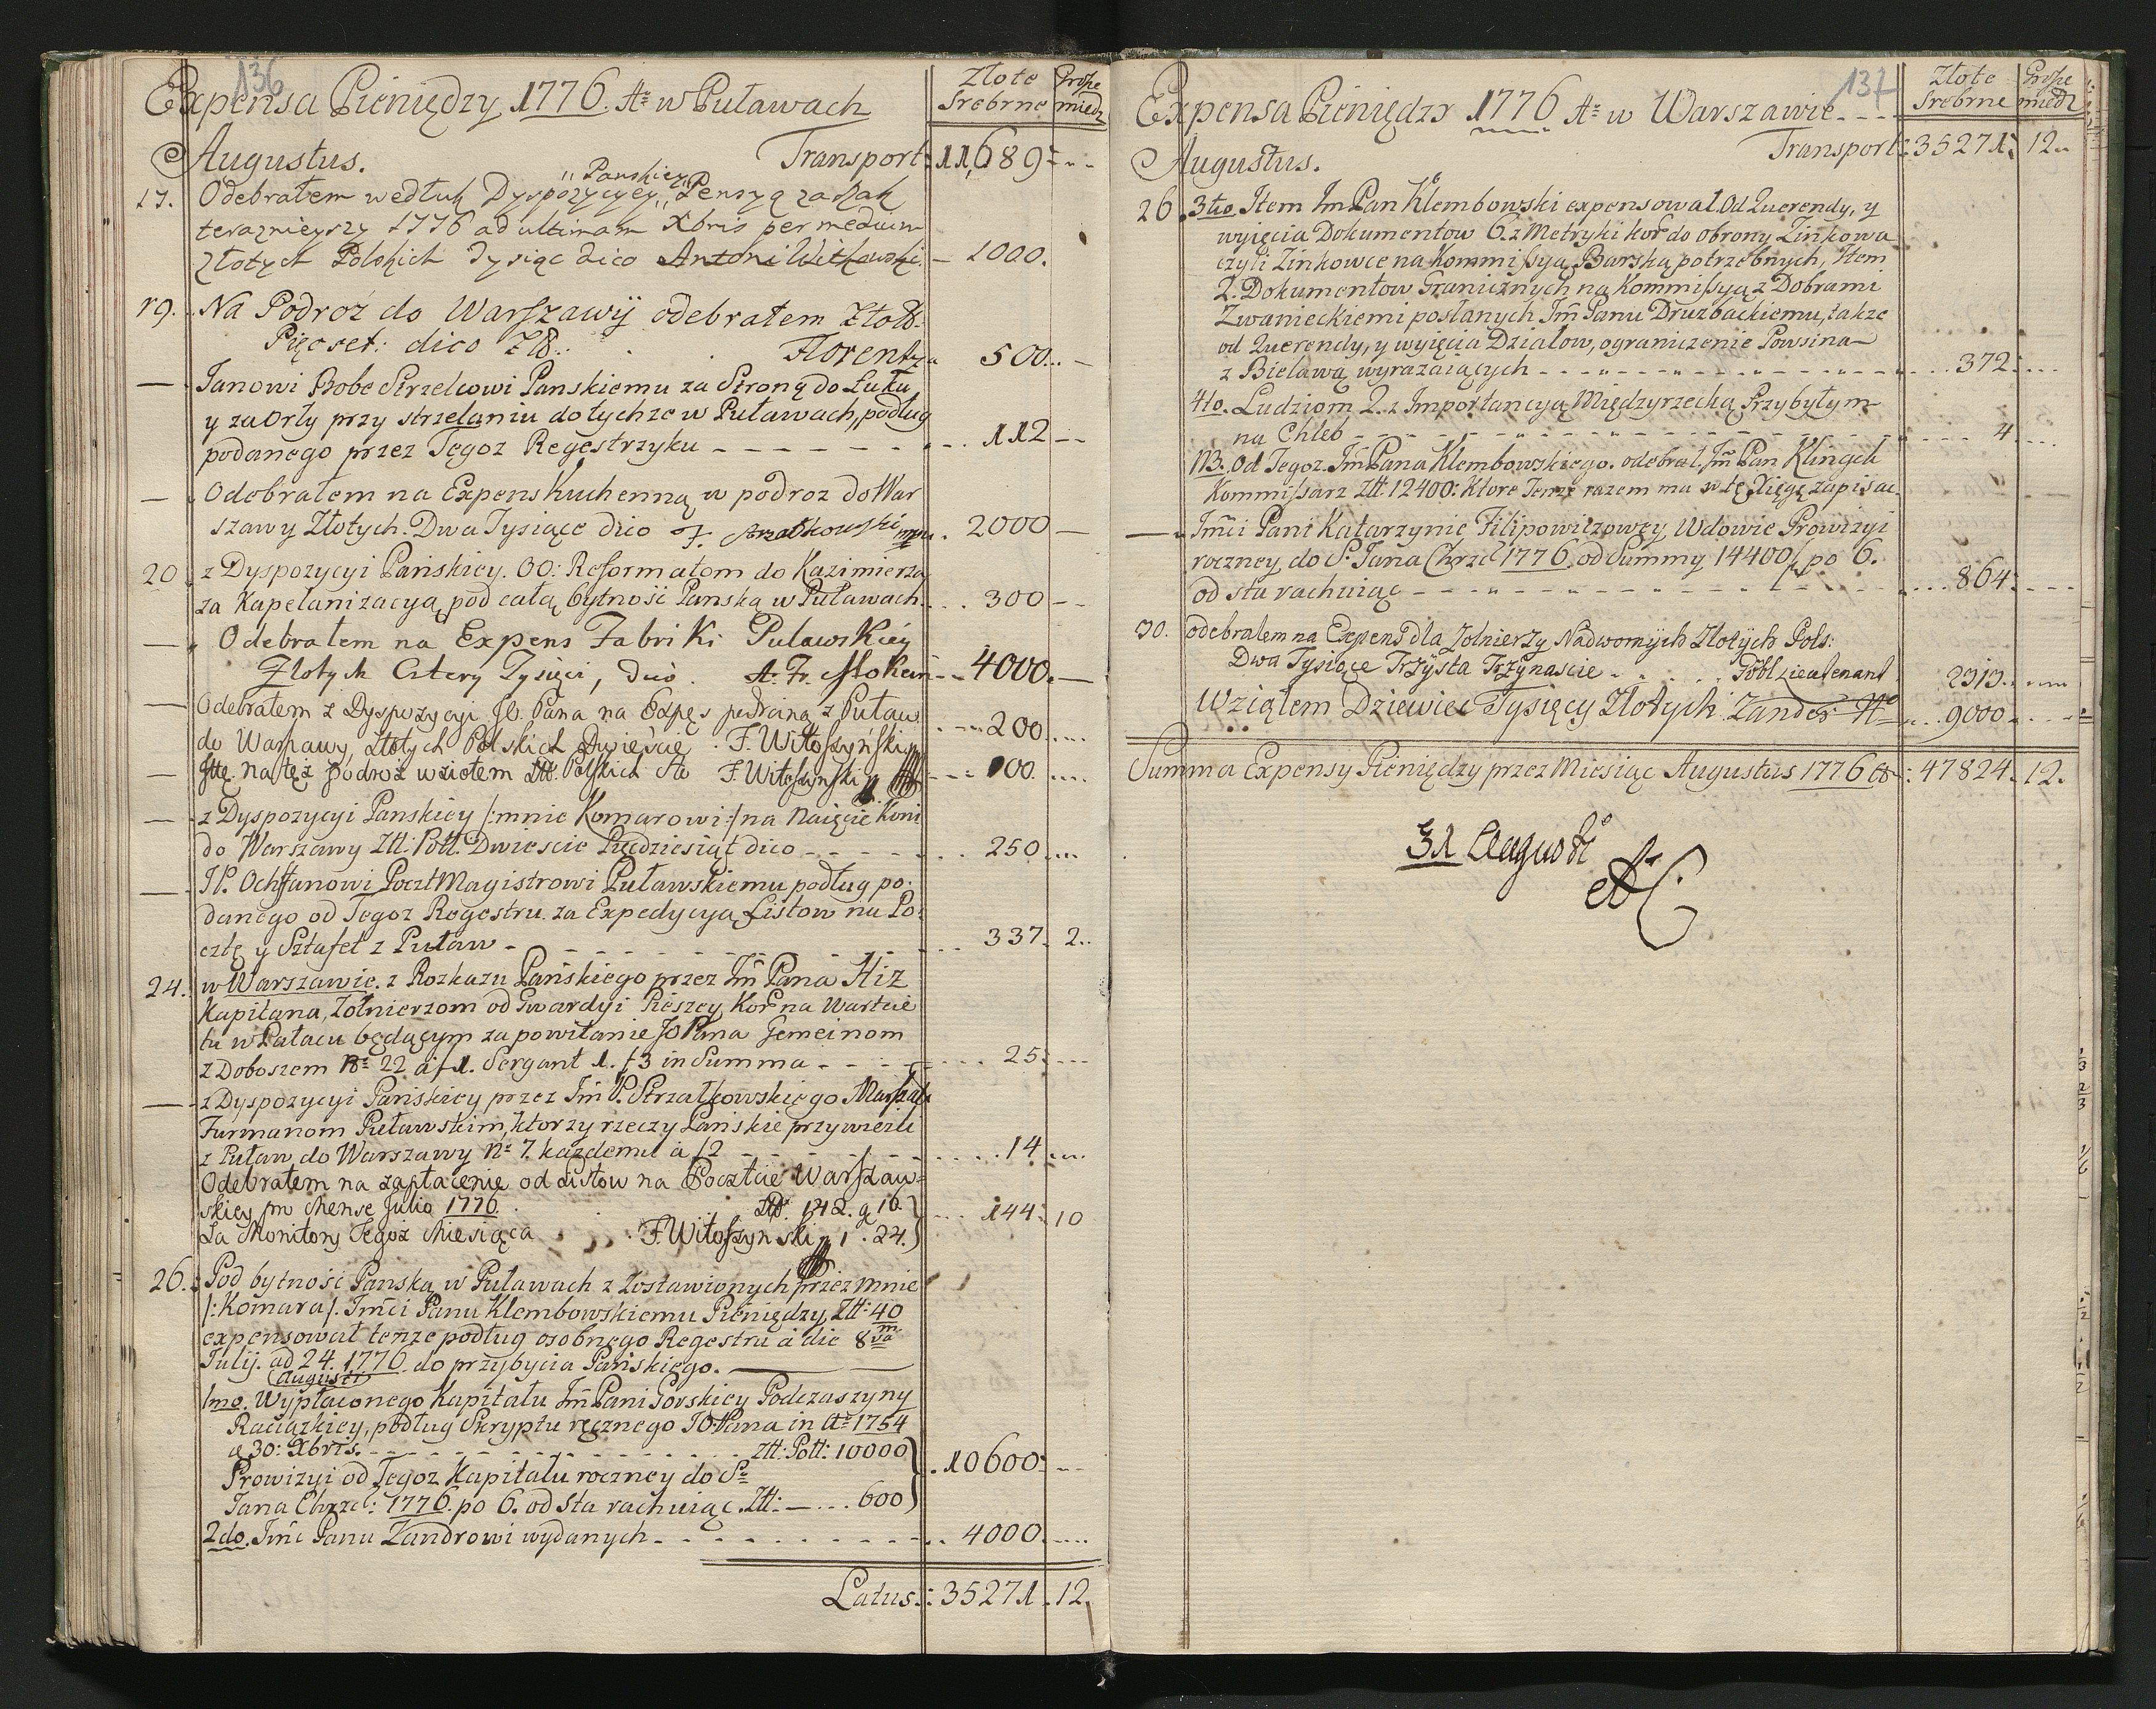 136
Expensa Pieniędzy 1776. Aº w Puławach
Złote Srebrne
Grosze miedz
Augustus. Transport: 11,689:--
17. Odebrałem według Dyspozycyey „Panskiey„ Pensyą za Rok
teraznieyszy 1776 ad ultimam Xbris per medium
Złotych Polskich Tysiąc dico Antoni Witkowski. – 1000.
19. Na Podroż do Warszawÿ odebrałem Złott.
Pięcset: dico Ztt.. Florentyn 500.. –
— Janowi Bobe Strzelcowi Panskiemu za Stronę do Łuku,
y za Orły przy strzelaniu do tychże w Puławach, podług
podanego przez Tegoz Regestrzyku - - - - - - 112 --
— Odebrałem na Expens Kuchenną w podroz do War
szawy Złotych. Dwa Tysiące dico F. Strzałkowski mpr. 2000 —
20 z Dyspozycyi Pańskiey. OO: Reformatom do Kazimierza
za Kapelanizacyą pod całą bytność Panską w Puławach. . . 300 --
— Odebrałem na Expens Fabriki Puławskiéy
Złotych Cztery Tysięci, dico. A. Fr. Hoken -- 4000. —
— Odebrałem z Dyspozycyi JO. Pana na Expęs podrożną z Puław
do Warszawy, złotych Polskich Dwieście . F. Witoszyński --- 200 ....
— Itē. na tęż podroż wziołem Ztt. Polskich Sto F. Witoszynski --- 100. ....
— z Dyspozycyi Panskiey /:mnie Komarowi:/ na Naięcie Koni
do Warszawy Ztt. Poll. Dwieście Pięćdziesiąt dico - - - - - 250 ...
— JP. Ochftanowi PocztMagistrowi Puławskiemu podług po:
danego od Tegoz Regestru. za Expedycyą Listow na Po:
cztę y Sztafet z Puław - - - - - - - 337. 2..
24. w Warszawie. z Rozkazu Pańskiego przez Jm̄ Pana Hiz
Kapitana, Żołnierzom od Gwardyi Pieszey Kor̄ na Warcie
tu w Pałacu będącym za powitanie JO Pana Gemeinom
z Doboszem Nº 22 a ƒ 1. Sergant 1. ƒ 3 in Summa - - - - - 25: ...
— z Dyspozycyi Pańskiey przez Jm̄ P. Strzałkowskiego Marszał:
Furmanom Puławskim, ktorzy rzeczy Pańskie przywieźli
z Puław do Warszawy Nº 7. każdemu à ƒ 2 - - - - - 14 ....
Odebrałem na zapłacenię od Listow na Poczcie Warszaw=
skiey pro Mense Julio 1776. . . Ztt. 142. g 16. } --- 144: 10
Za Monitory Tegoż Miesiąca . . . F. Witoszynski 1 . 24. }
26. Pod bytność Panską w Puławach z zostawionych przez mnie
/:Komara/. Jm̄ci Panu Klembowskiemu Pieniędzy, Ztt: 40 m
expensował tenze podług osobnego Regestru à die 8va
Julij. ad 24. Augusti 1776. do przybycia Pańskiego. —
1mo. Wypłaconego Kapitału Jm̄ Pani Gorskiey Podczaszyny
Raciązkiey, podług Skryptu ręcznego JO Pana in Aº 1754
d. 30: Xbris. - - - - - - - - Ztt: Poll: 10000 } . 10600: --
Prowizyi od Tegoz Kapitału roczney do Sº
Jana Chrzcᶜ: 1776. po 6. od sta rachuiąc. Ztt: — ... 600 }
2do. Jm̄c Panu Zandrowi wydanych - - - - - - - 4000. ....
Latus: : 35271 . 12.
137
Expensa Pieniędzy 1776 Aº w Warszawie. - - -
Złote Srebrne
Grosze miedz
Transport: 35271. 12..
Augustus.
26 . 3tio. Item Jm̄ Pan Klembowski expensował. Od Querendy, y
wyięcia Dokumentow 6. z Metryki kor̄ do obrony Zinkowa
czyli Zinkowce na Kommissyą Barską potrzebnych, Item
2. Dokumentow Granicznych na Kommissyą z Dobrami
Zwanieckiemi posłanych Jm̄ Panu Druzbackiemu, także
od Querendy, y wyięcia Działow, ograniczenie Powsina
z Bielawą wyrazaiących - - - - - - - - - - - - . . . 372: ...
4to. Ludziom 2. z Importancyą Międzyrzecką Przybyłym
na Chleb - - - - - - - - - - - - - - - . . . . 4 ....
NB. Od Tegoz. Jm̄ Pana Klembowskiego. odebrał, Jm̄ Pan Klingel:
Kommissarz Ztt. 12400: Ktore Tenze razem ma w tę Xięgę zapisać.
— Jm̄ci Pani Katarzynie Filipowiczowey, Wdowie Prowizyi
roczney do S. Jana Chrzcᶜ 1776. od Summy 14400/ po 6.
od sta rachuiąc - - - - - - - - - - - - . . . . 864: - - -
30. odebrałem na Expens dla Żołnierzy Nadwornÿch Złotÿch Pols:
Dwa Tysiące Trzÿsta Trzÿnascie - . . . . . Pöbl Lieutenant 2313. ....
Wziąłem Dziewięc Tysięcy Złotych. Zander . . . 9000. ...
Summa Expensy Pieniędzy przez Miesiąc Augustus 1776 : 47824. 12.
31 Augusti
AC